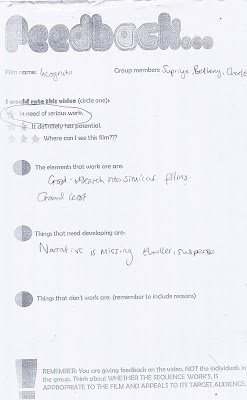 Feedback...
Film name: Incognito Group members: Supriya, Bethany,
I would rate this video (circle one):
In need of serious work.
It definitely has potential.
Where can I see this film???
The elements that work are are:
Good research into similar films.
Good
Things that need developing are:
Narrative is missing thriller, suspense
Things that don't work are: (remember to include reasons)
REMEMBER: You are giving feedback on the video, NOT the individuals in
the group. Think about WHETHER THE SEQUENCE WORKS, IS
APPROPRIATE TO THE FILM AND APPEALS TO ITS TARGET AUDIENCE.